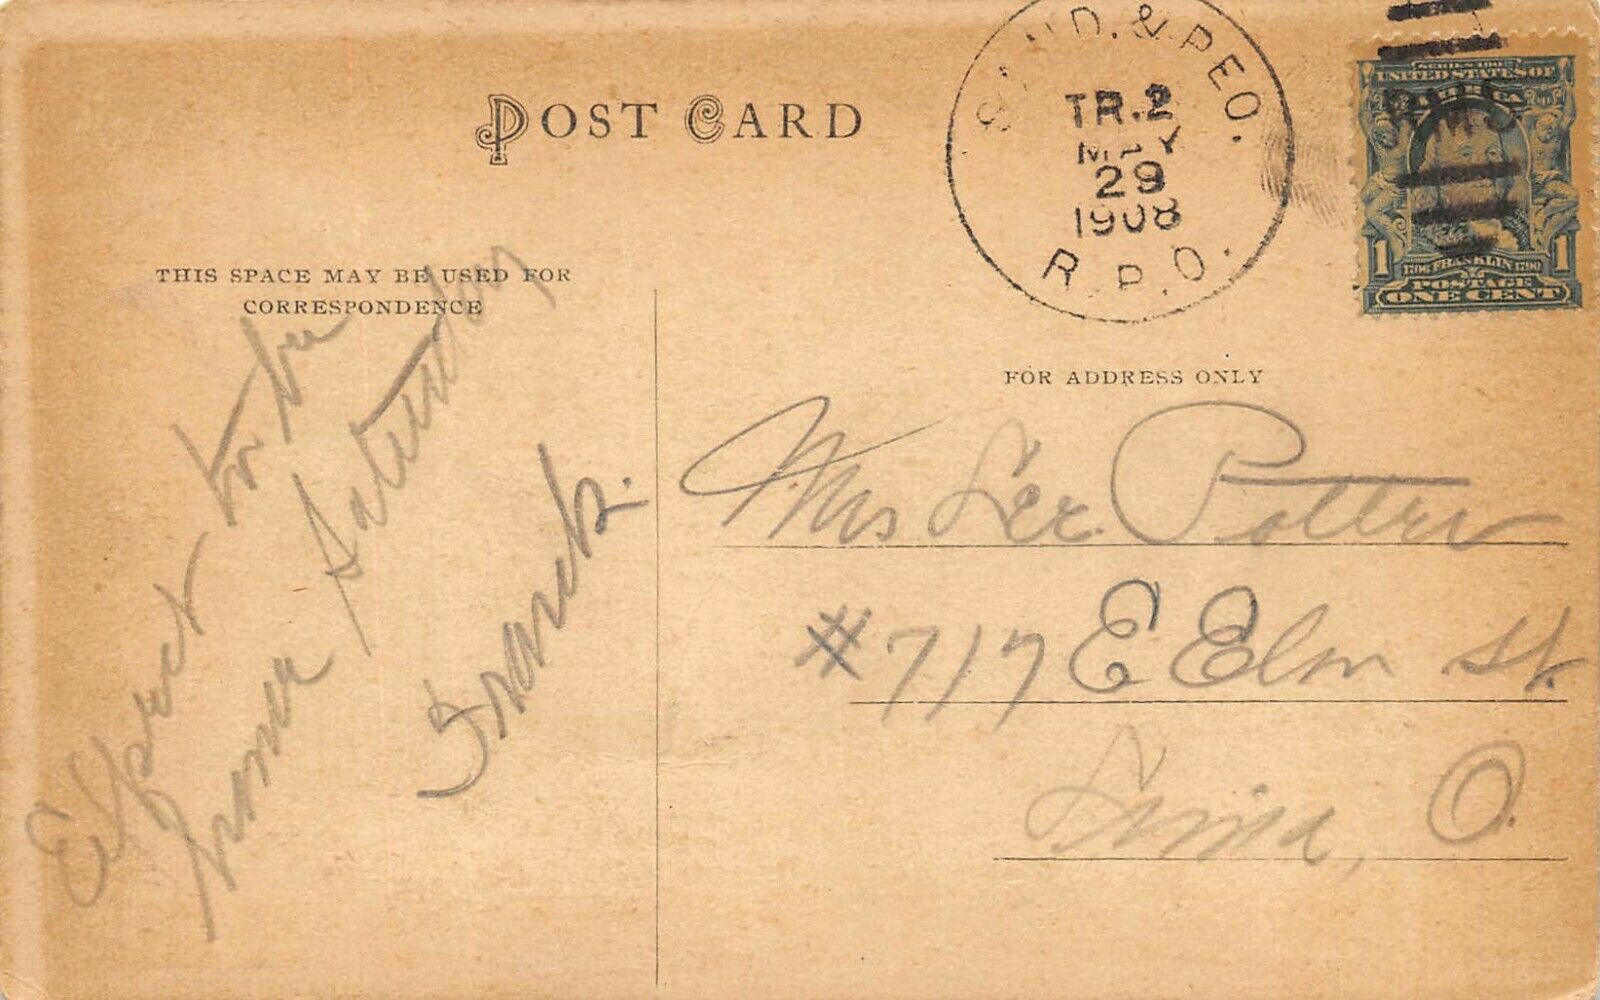 POST CARD
SAND. & PEO.
TR. 2
MAY
29
1908
R.P.O.
R.M.S
SERIES 1902
UNITED STATES OF
AMERICA
1 1706 FRANKLIN 1790 1
POSTAGE
ONE CENT
THIS SPACE MAY BE USED FOR
CORRESPONDENCE
Expect to be
home Saturday
Frank.
FOR ADDRESS ONLY
Mrs Lee Potter
#717 E Elm St.
Lima, O.